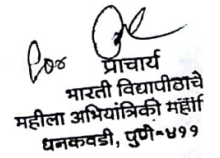 For
प्राचार्य
भारती विद्यापीठाचे
महीला अभियांत्रिकी
धनकवडी, पुणे-४११